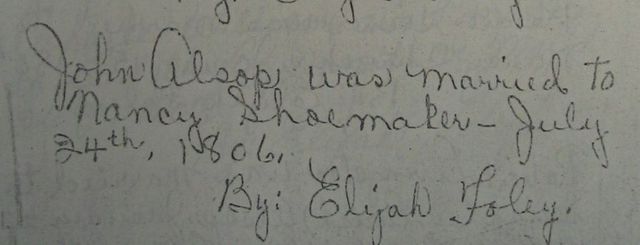 John Alsop was married to
Nancy Shoemaker - July
24th, 1806.
By: Elijah Foley.